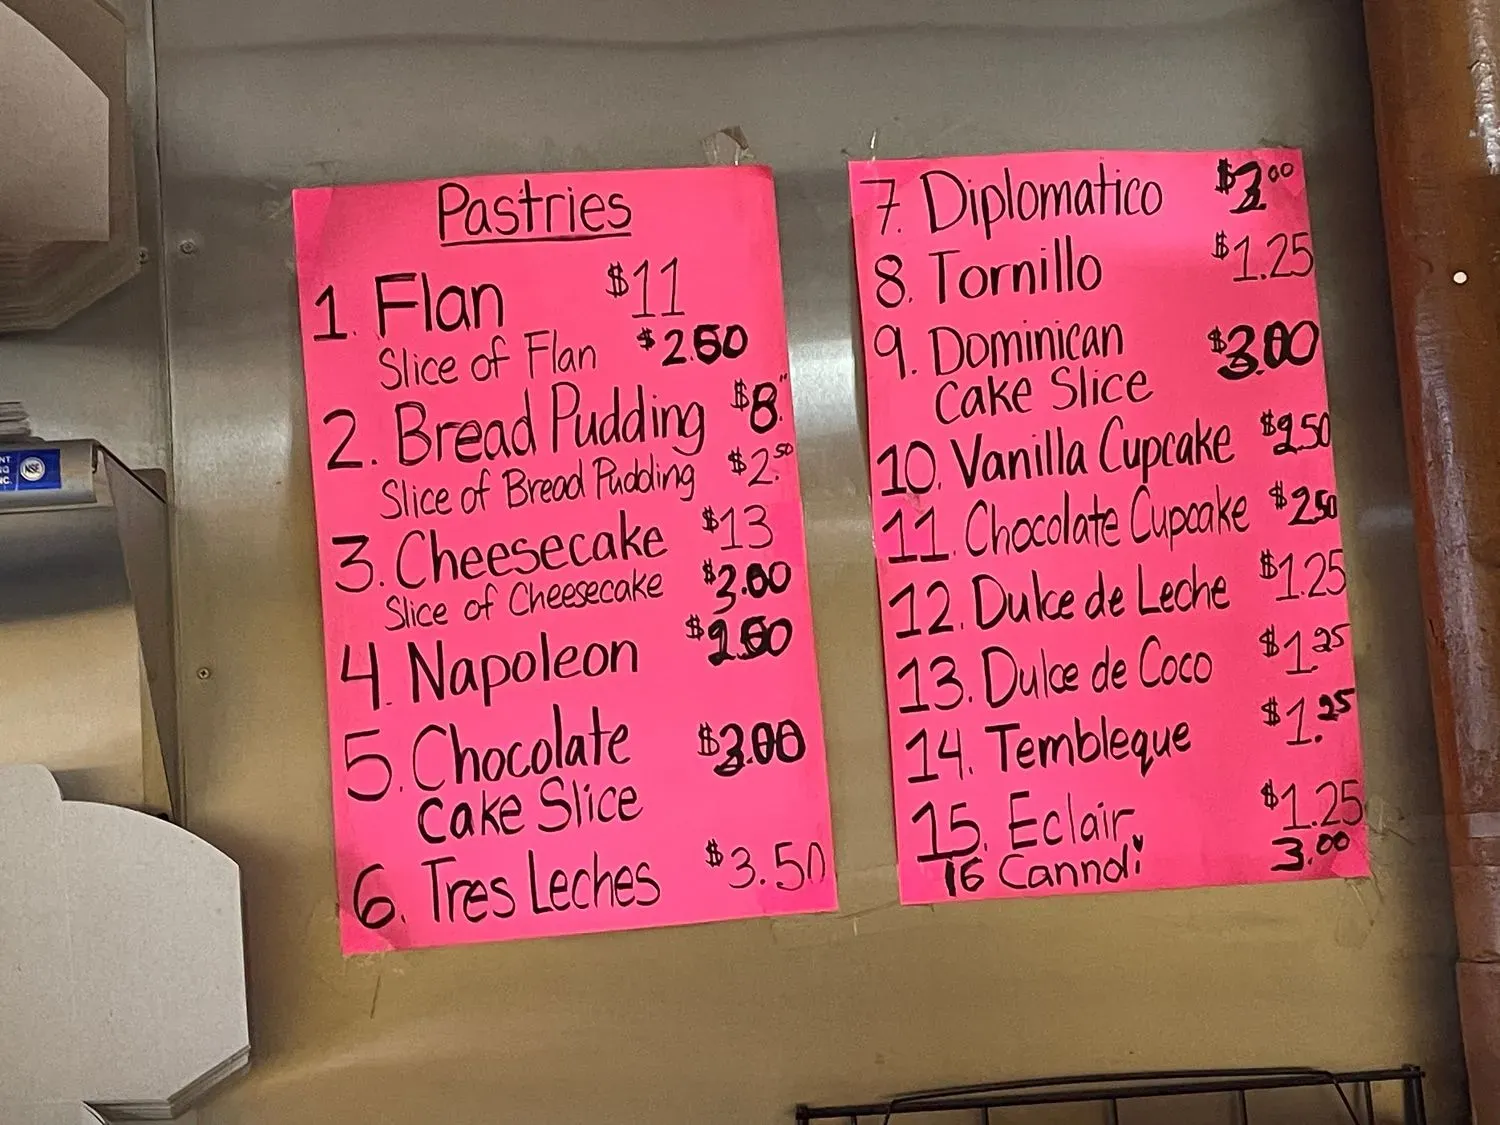 Pastries
1. Flan $11
Slice of Flan $2.50
2. Bread Pudding $8.
Slice of Bread Pudding $2.50
3. Cheesecake $13
Slice of Cheesecake $3.00
4. Napoleon
5. Chocolate $3.00
Cake Slice
6. Tres Leches $3.50
7. Diplomatico
8. Tornillo $1.25
9. Dominican $3.00
Cake Slice
10. Vanilla Cupcake $2.50
11. Chocolate Cupcake $2.50
12. Dulce de Leche $1.25
13. Dulce de Coco $1.25
14. Tembleque $1.25
15. Eclair $1.25
16 Cannoli 3.00
NSF